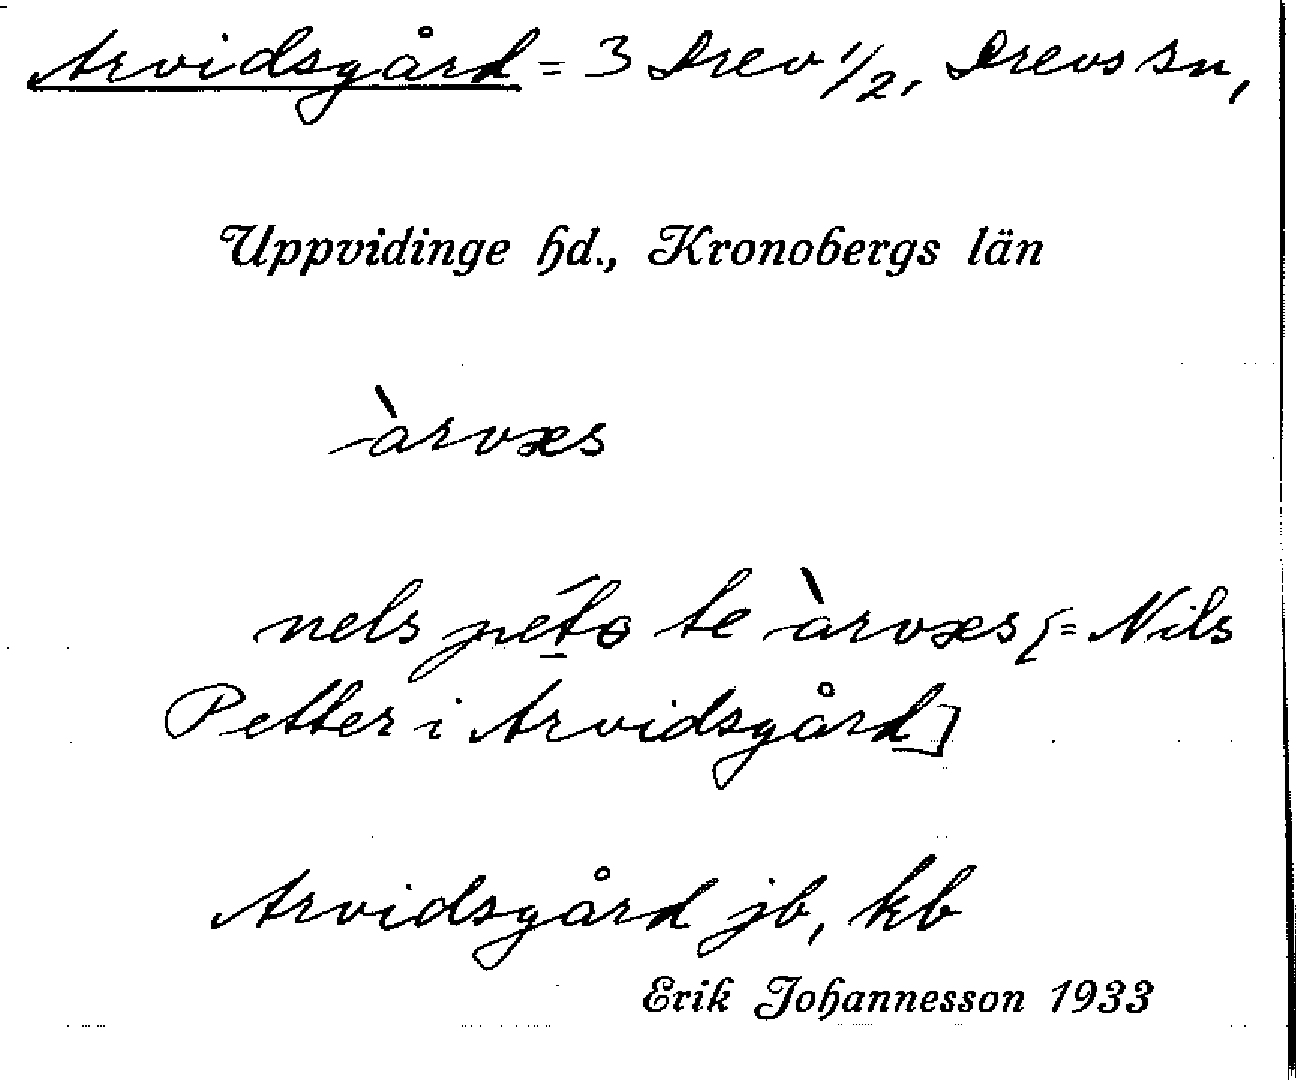 Arvidsgård = 3 Drev 1/2, Drevs sn,
Uppvidinge hd., Kronobergs län
àrvæs
nels péto te àrvæs [= Nils
Petter i Arvidsgård]
Arvidsgård jb, kb
Erik Johannesson 1933